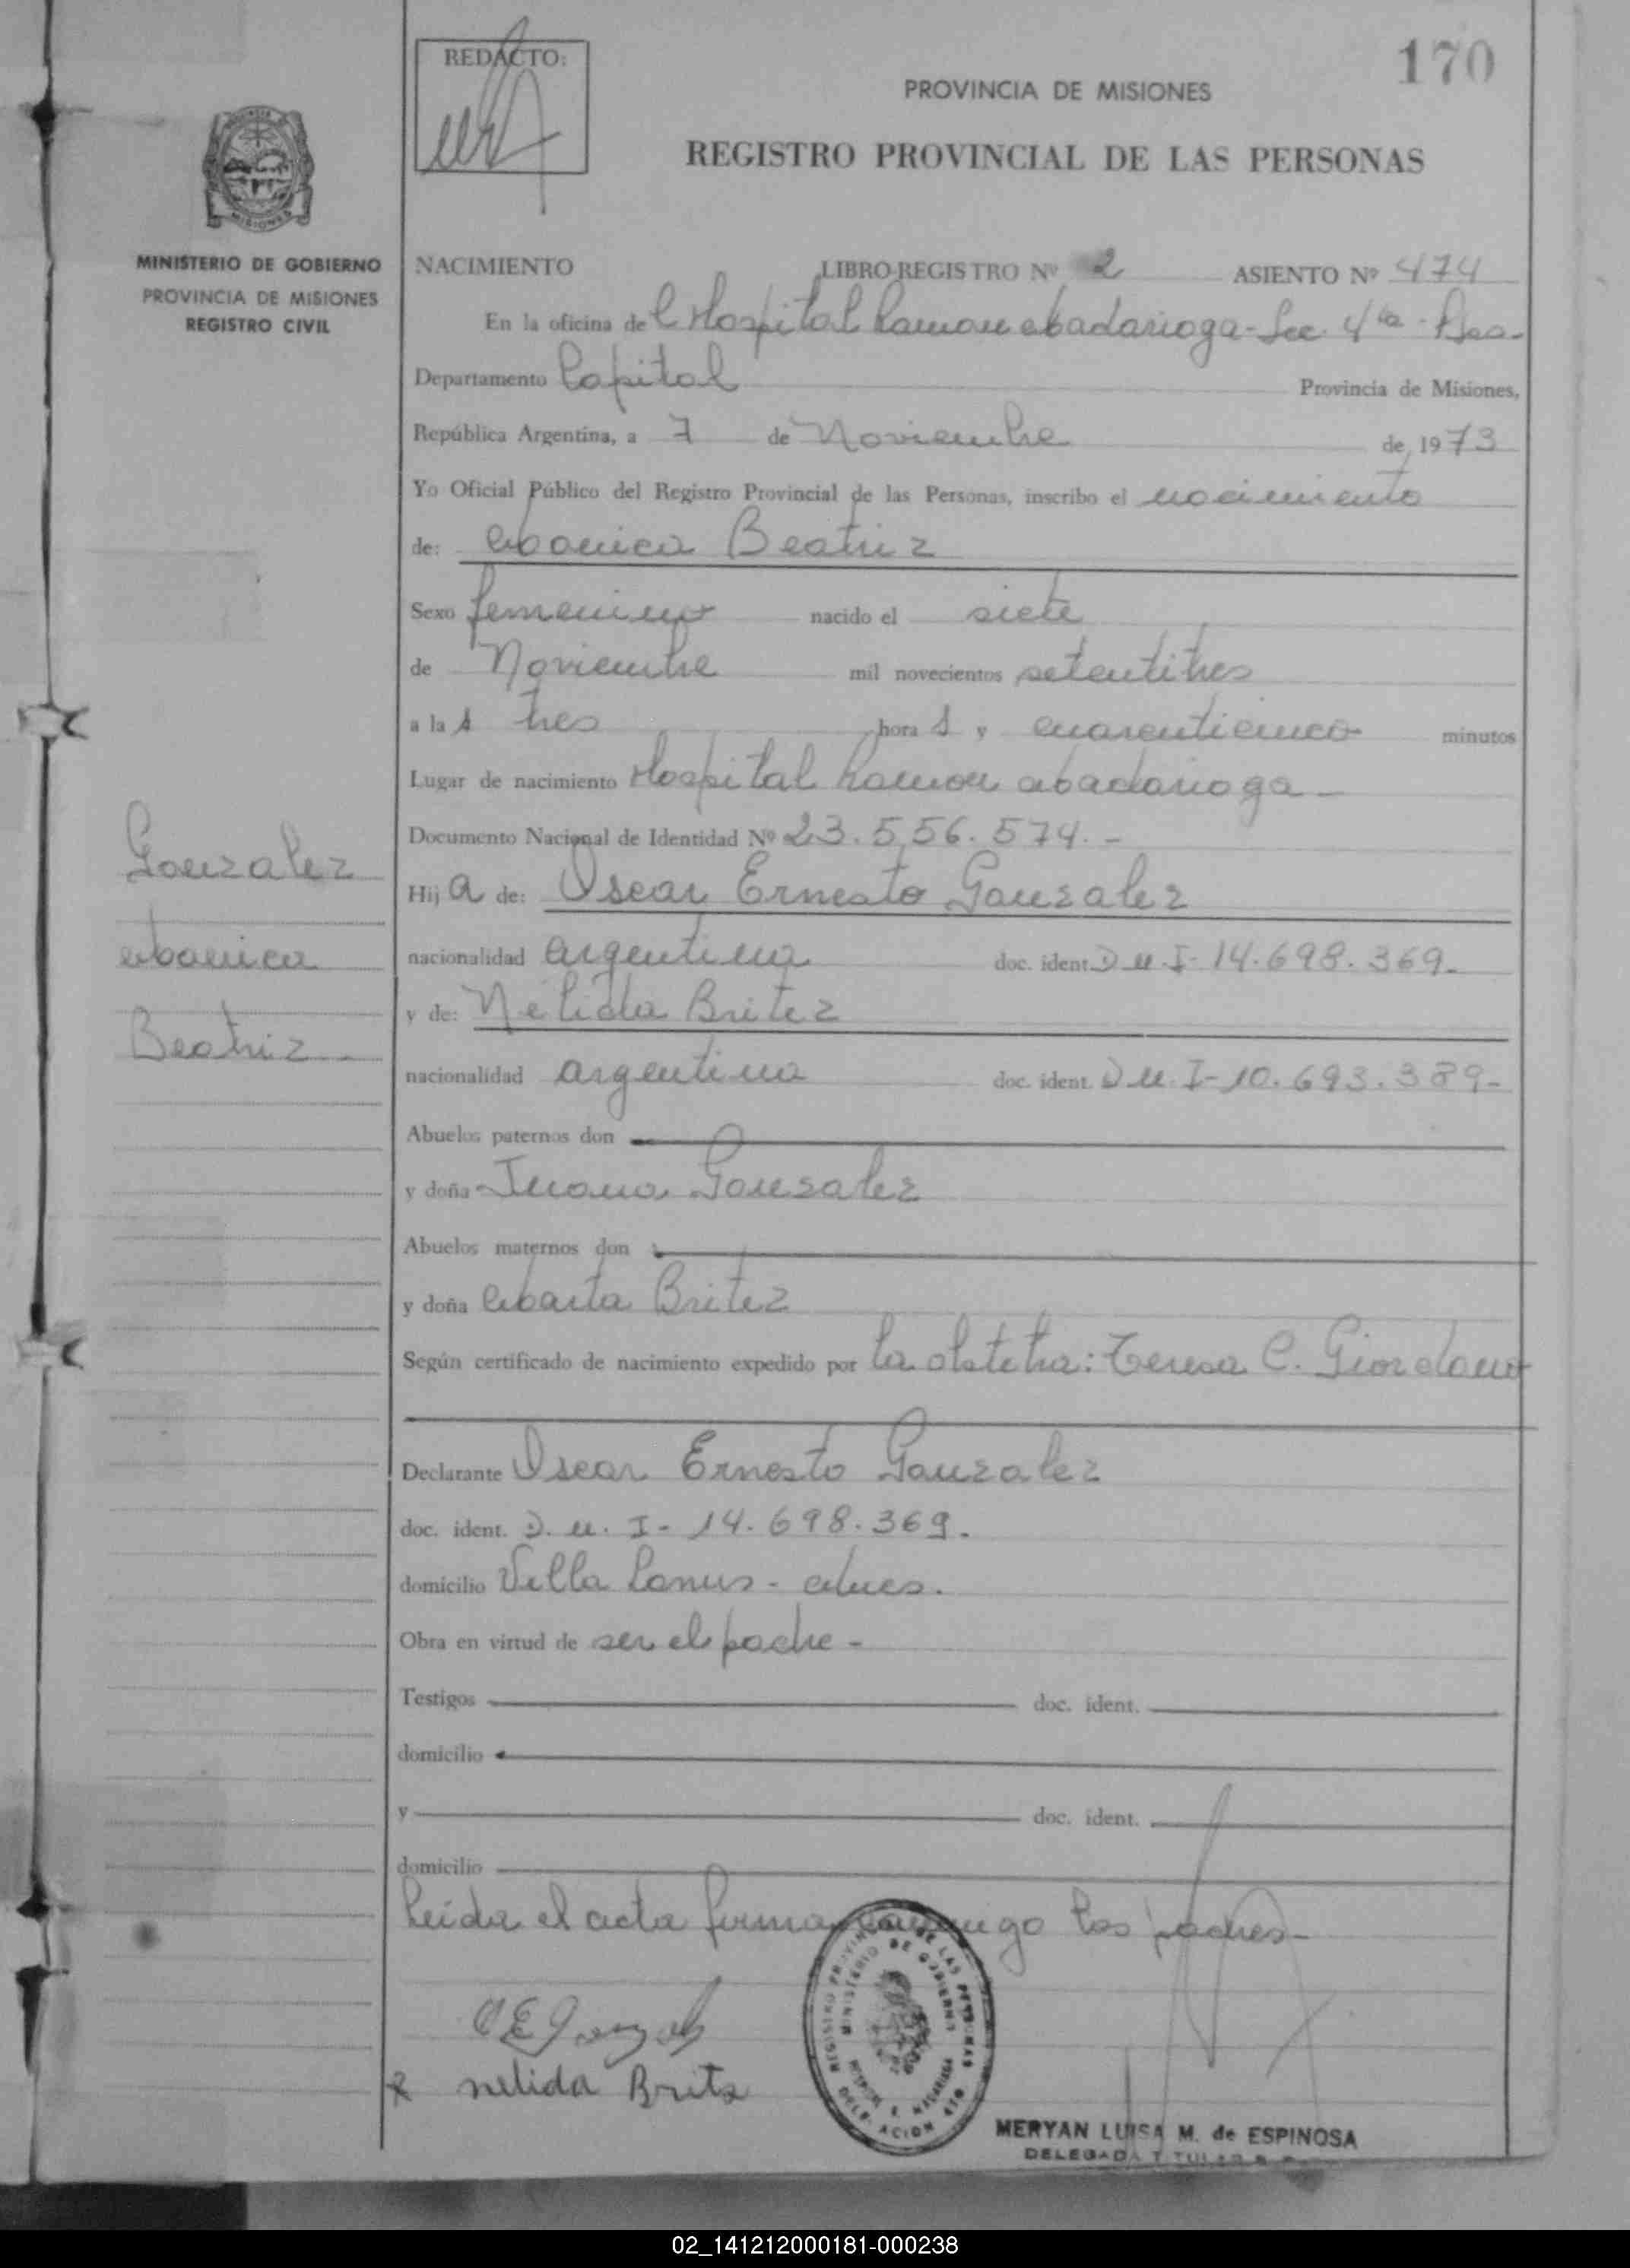 170
REDACTO:
PROVINCIA DE MISIONES
REGISTRO PROVINCIAL DE LAS PERSONAS
MINISTERIO DE GOBIERNO
PROVINCIA DE MISIONES
REGISTRO CIVIL
NACIMIENTO LIBRO-REGISTRO Nº 2 ASIENTO Nº 474
En la oficina del Hospital Ramon Madariaga - Sec. 4ta - Pdas.
Departamento Capital Provincia de Misiones,
República Argentina, a 7 de Noviembre de 1973
Yo Oficial Público del Registro Provincial de las Personas, inscribo el nacimiento
de: Monica Beatriz
Sexo femenino nacido el siete
de Noviembre mil novecientos setentitres
a las tres horas y cuarenticinco minutos
Lugar de nacimiento Hospital Ramon Madariaga -
Documento Nacional de Identidad Nº 23.556.574.-
Gonzalez
Monica
Beatriz
Hija de: Oscar Ernesto Gonzalez
nacionalidad argentina doc. ident. D.N.I- 14.698.369.
y de: Nélida Britez
nacionalidad argentina doc. ident. D.N.I- 10.693.389-
Abuelos paternos don
y doña Juana Gonzalez
Abuelos maternos don
y doña Marta Britez
Según certificado de nacimiento expedido por la obstetra: Teresa C. Giordano
Declarante Oscar Ernesto Gonzalez
doc. ident. D.N.I- 14.698.369.
domicilio Villa Lanus -
Obra en virtud de ser el padre -
Testigos doc. ident.
domicilio
y doc. ident.
domicilio
Leída el acta firman conmigo los padres-
O E Gonzalez
nelida Britz
REGISTRO PROVINCIAL DE LAS PERSONAS
MINISTERIO DE GOBIERNO
HOSPITAL R. MADARIAGA
MERYAN LUISA M. de ESPINOSA
DELEGADA TITULAR
02_141212000181-000238